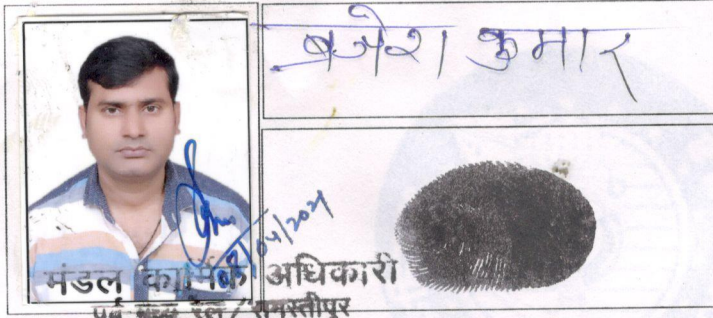 ब्रजेश कुमार
/04/2021
मंडल कार्मिक अधिकारी
पूर्व मध्य रेल / समस्तीपुर